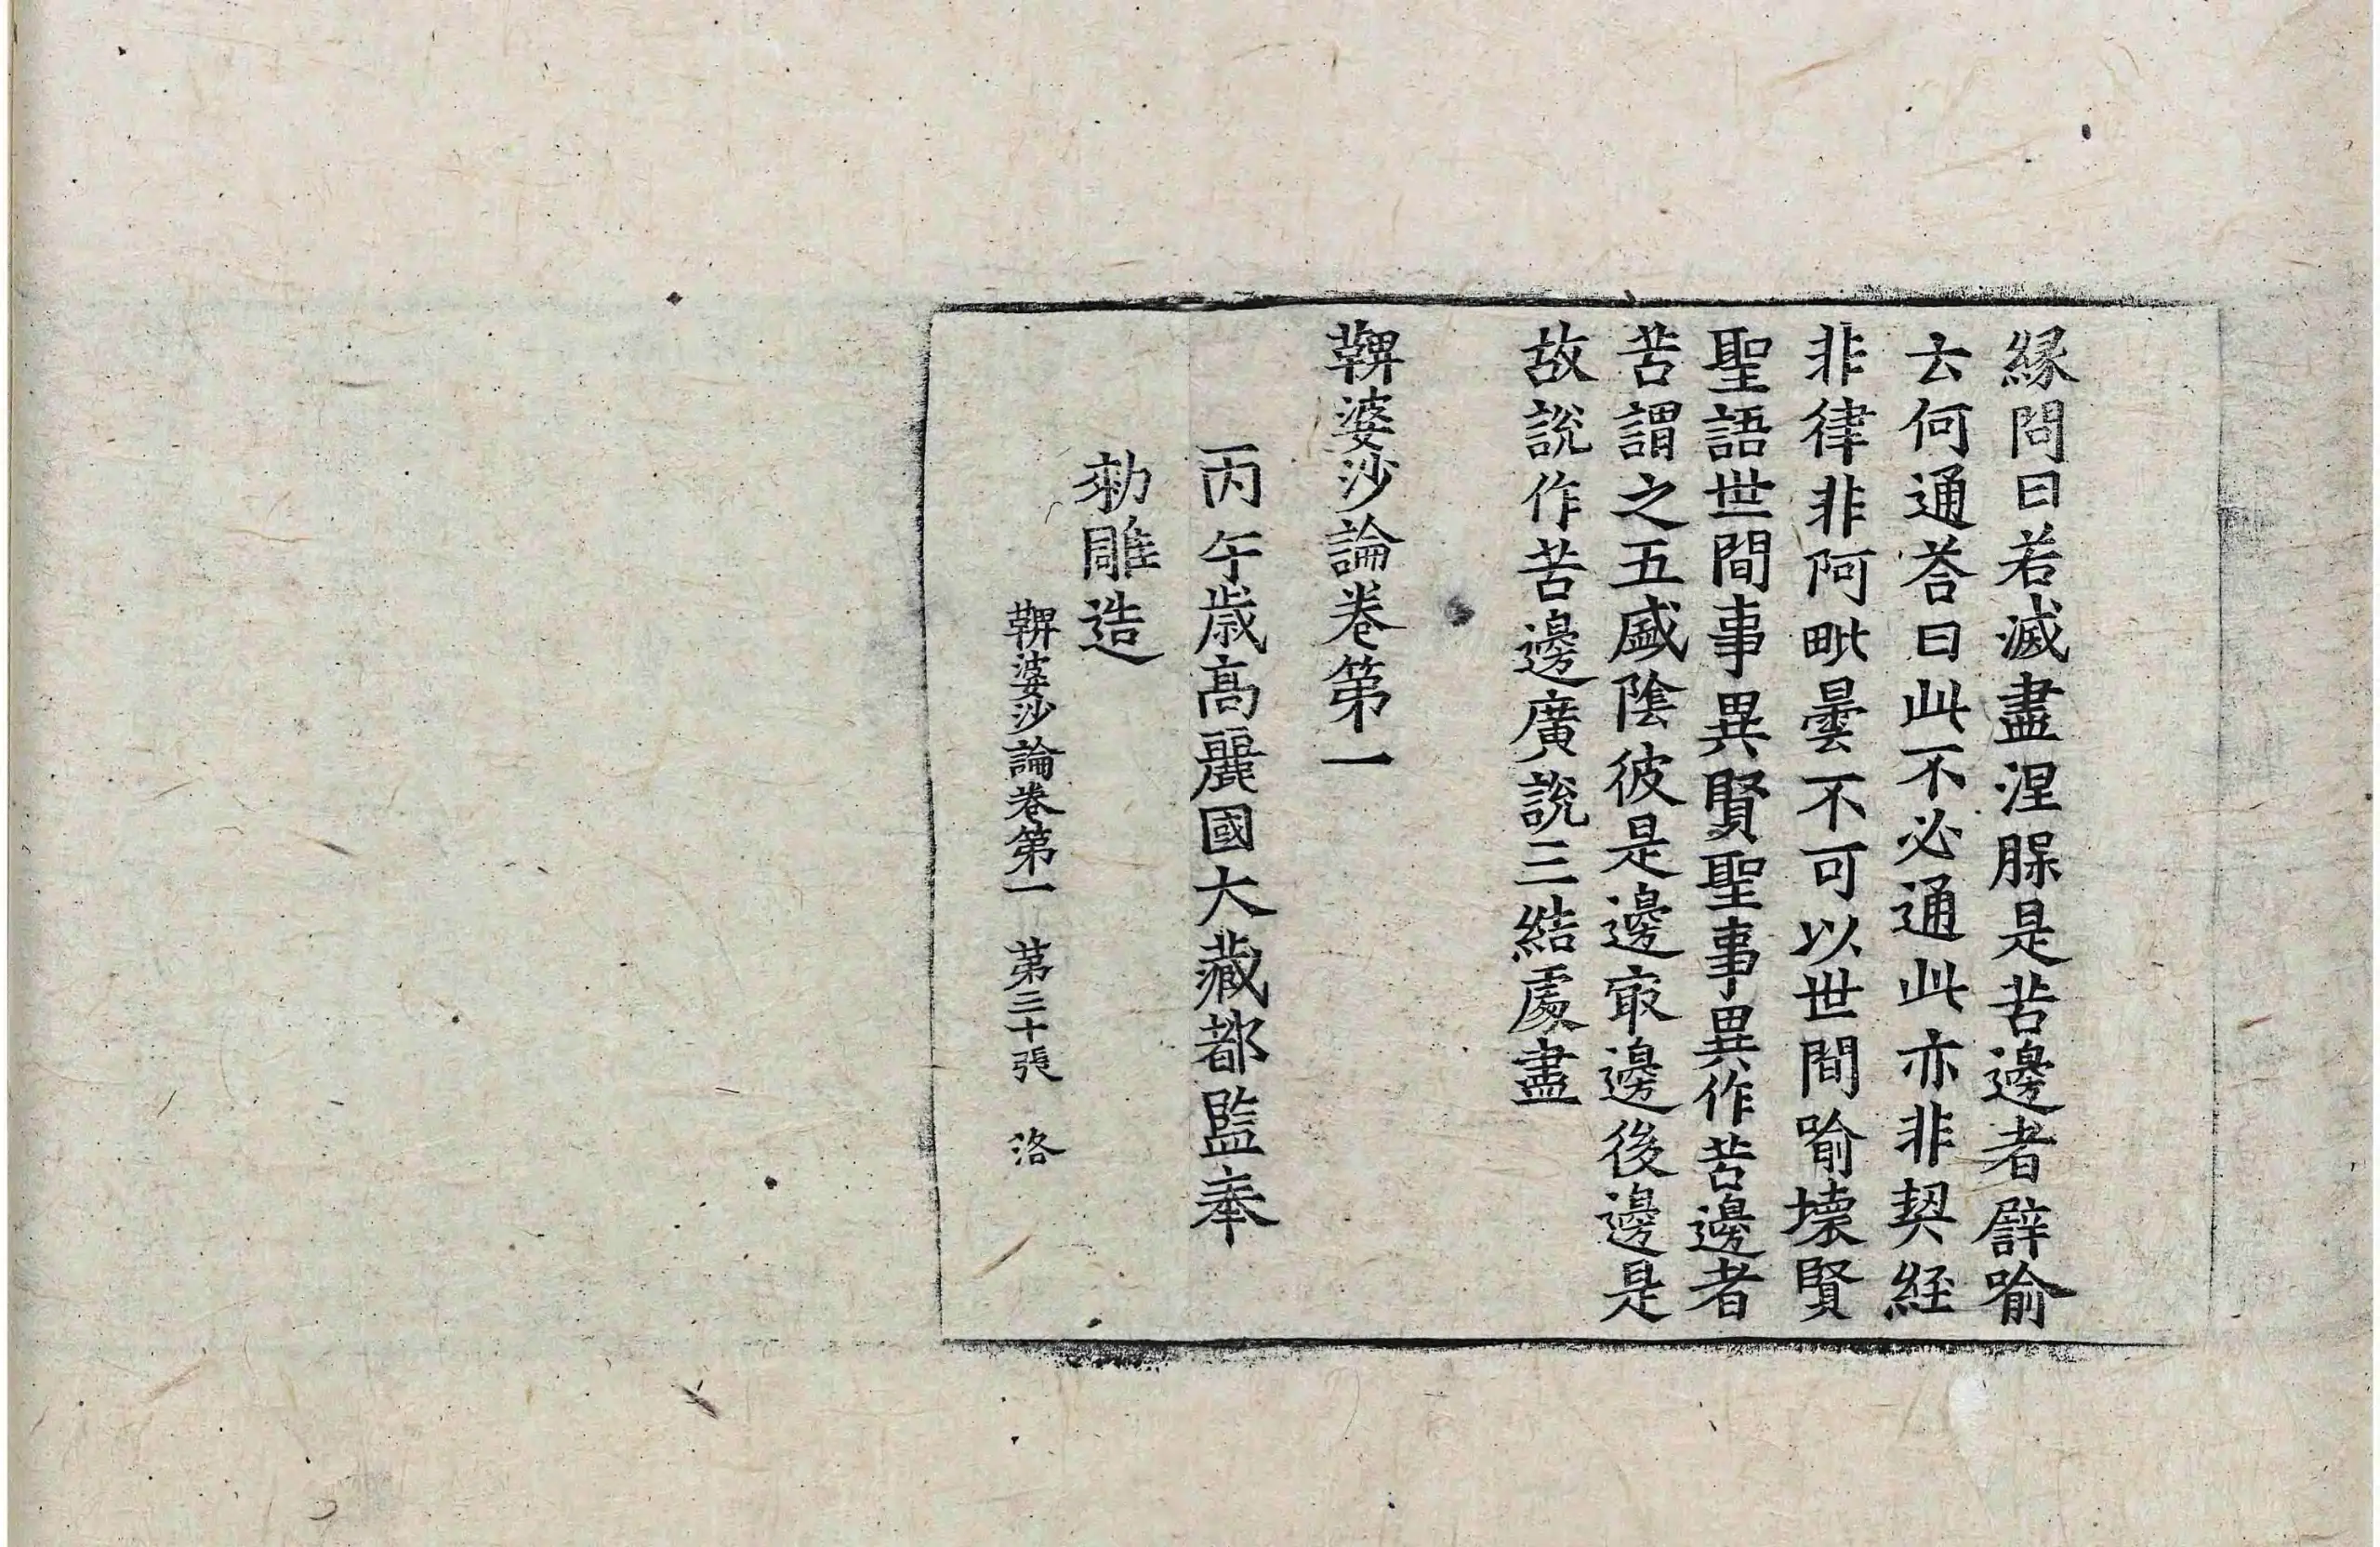 緣問曰若滅盡涅脲是苦邊者譬喻
去何通荅曰此不必通此亦非契經
非律非阿毗曇不可以世間喻壞賢
聖語世間事異賢聖事異作苦邊者
苦謂之五盛陰彼是邊㝡邊後邊是
故說作苦邊廣說三結處盡
鞞婆沙論卷第一
丙午歲高麗國大藏都監奉
勑雕造
鞞婆沙論卷第一 第三十張 洛